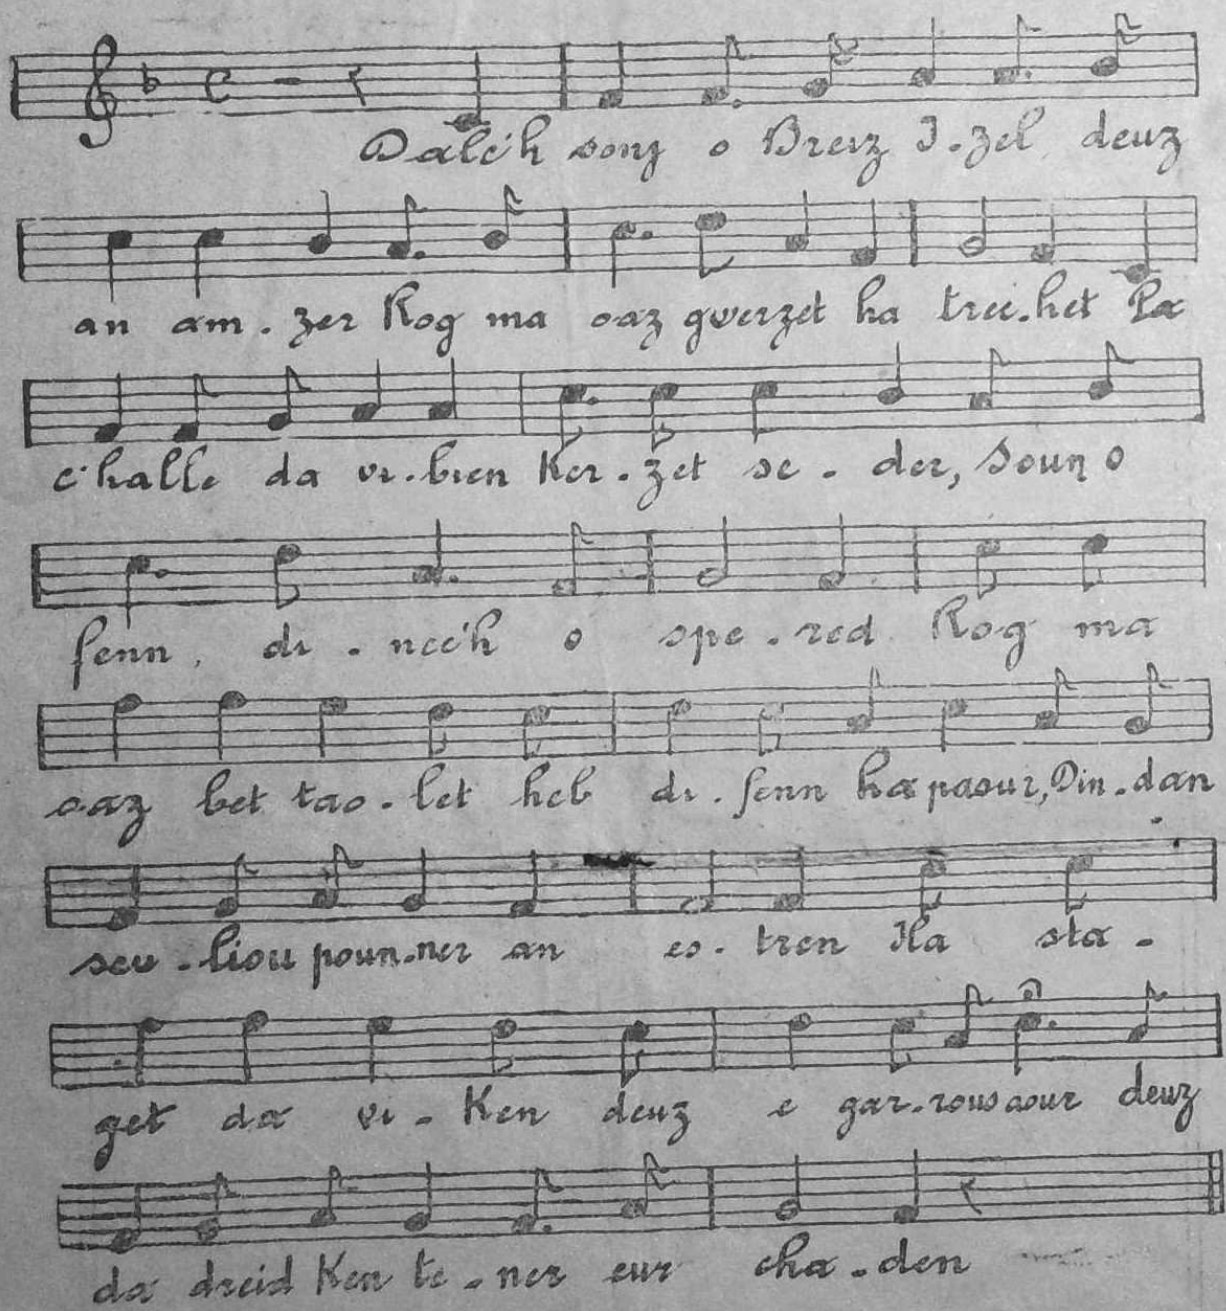 Dalc'h sonj o Breiz I-zel deuz
an am-zer Rog ma oaz gwerzet ha trec-het Pa
c'halle da vi-bien Ker-zet se-der, Soun o
fenn, di-nec'h o spe-red Rog ma
oaz bet tao-let heb di-fenn ha paour, Din-dan
seu-liou poun-ner an es-tren Ha sta-
get da vi-Ken deuz e gar-rous aour deuz
da dreid Ken te-ner eur cha-den